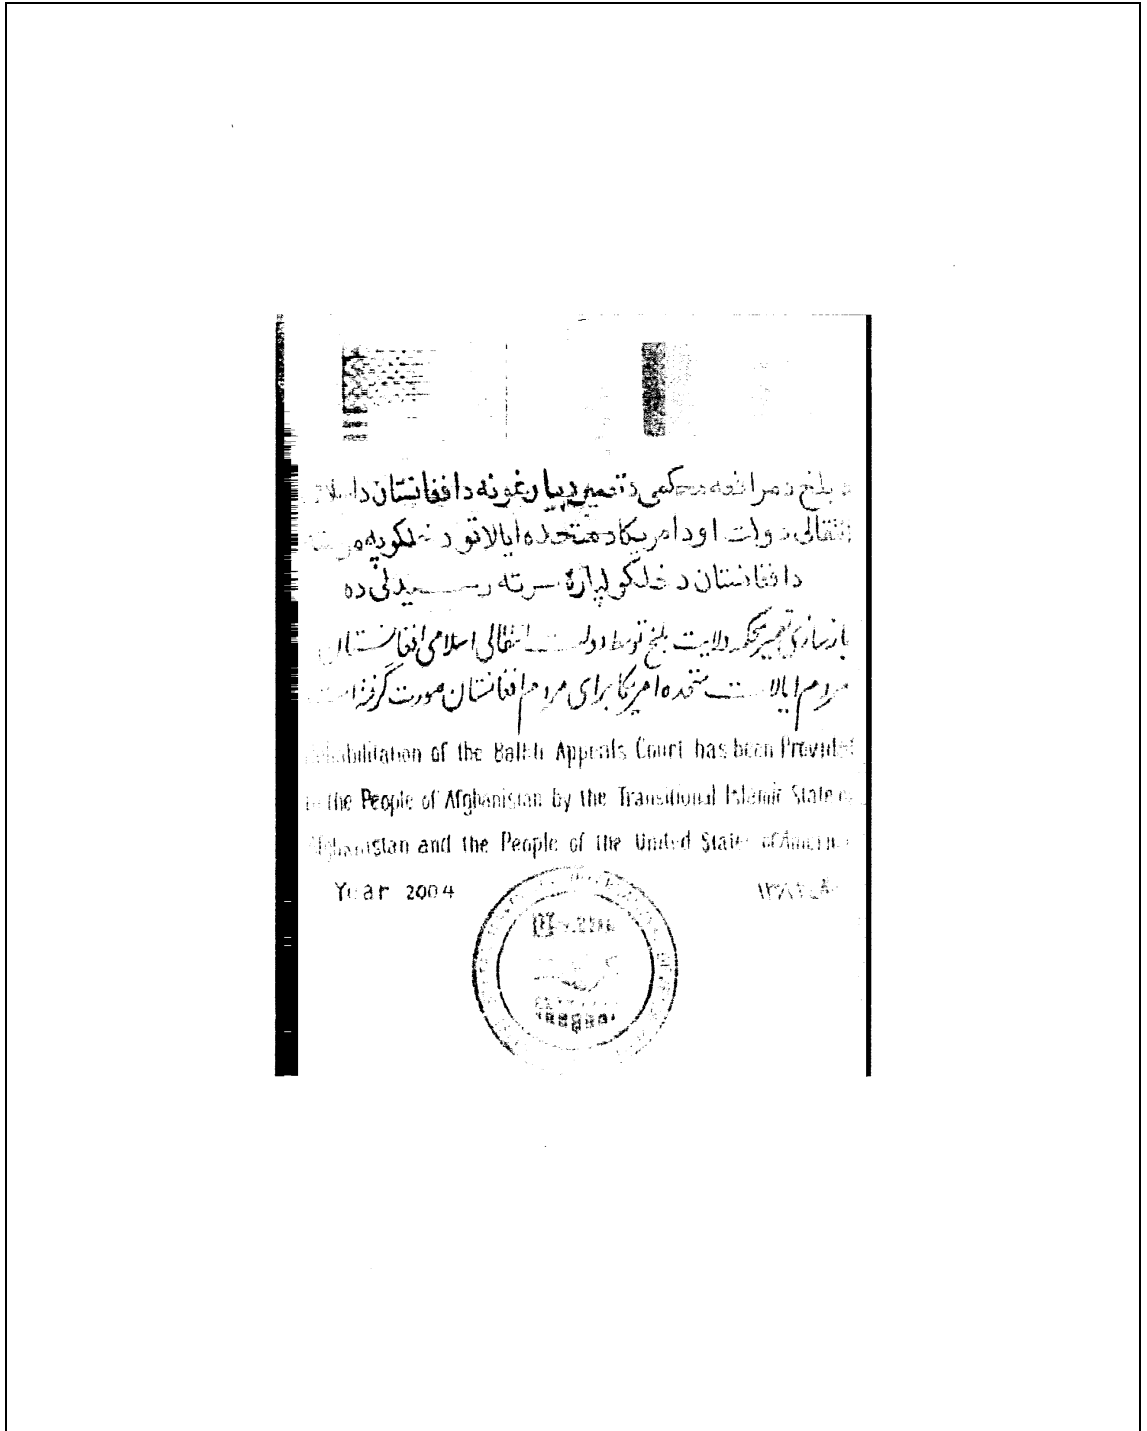 د بلخ د مرافعه محکمی د تعمیر د بیارغونه د افغانستان د اسلامی
انتقالی دولت او د امریکا د متحده ایالاتو د خلکو په مرسته
د افغانستان د خلکو لپاره سرته رسیدلی ده
بازسازی تعمیر محکمه ولایت بلخ توسط دولت انتقالی اسلامی افغانستان
مردم ایالات متحده امریکا برای مردم افغانستان صورت گرفته است
Rehabilitation of the Balkh Appeals Court has been Provided
to the People of Afghanistan by the Transitional Islamic State of
Afghanistan and the People of the United States of America
Year 2004